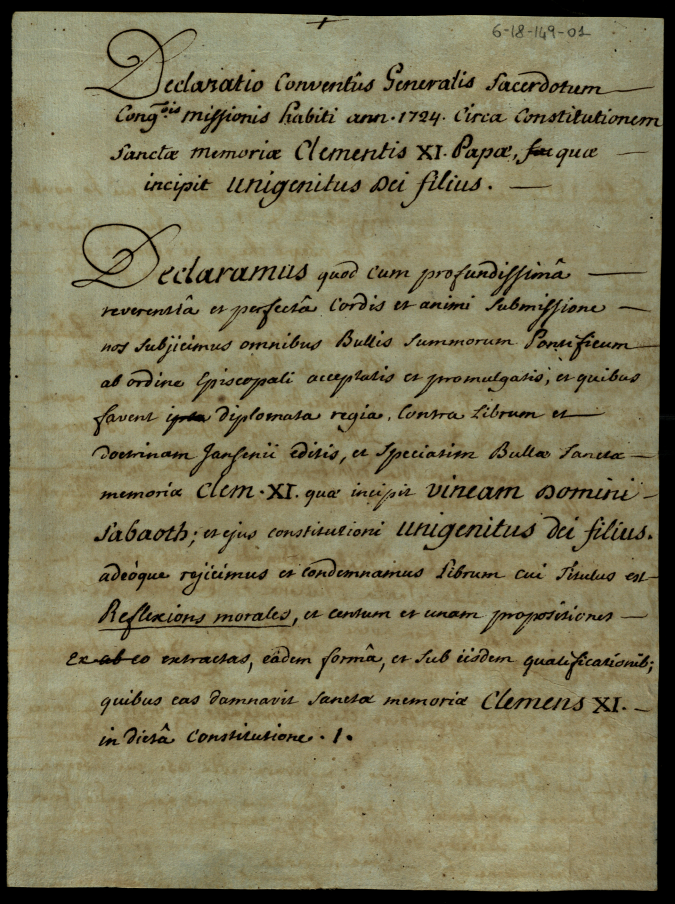 +
6-18-149-01
Declaratio Conventûs Generalis Sacerdotum
Cong.onis missionis habiti ann. 1724. Circa Constitutionem
Sanctæ memoriæ Clementis XI. Papæ, quæ
incipit Unigenitus Dei filius.
Declaramus quod cum profundissimâ
reverentiâ et perfectâ Cordis et animi Submissione
nos Subjicimus omnibus Bullis Summorum Pontificum
ab ordine Episcopali acceptatis et promulgatis, et quibus
favent diplomata regia, Contra Librum et
doctrinam Jansenii editis, et Speciatim Bullæ Sanctæ
memoriæ Clem. XI. quæ incipit Vineam Domini
Sabaoth; et ejus constitutioni Unigenitus Dei filius.
adeóque rejicimus et condemnamus Librum cui Titulus est
Reflexions morales, et centum et unam propositiones
Ex ab eo extractas, eâdem formâ, et Sub iisdem qualificationib;
quibus eas damnavit Sanctæ memoriæ Clemens XI.
in dictâ Constitutione. 1.